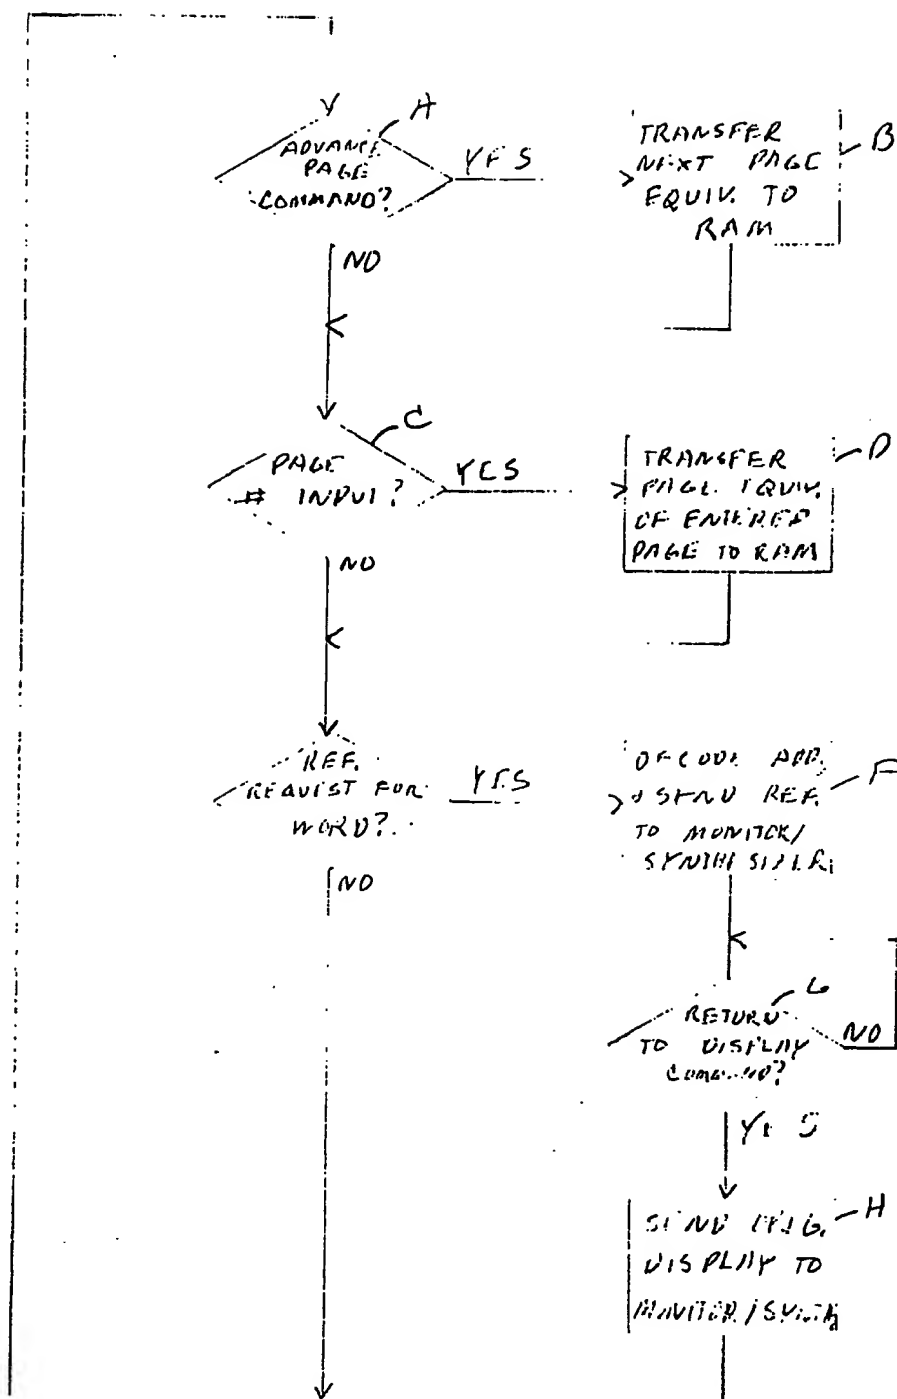 A
ADVANCE
PAGE
COMMAND?
YES
NO
TRANSFER
NEXT PAGE
EQUIV. TO
RAM
B
C
PAGE
# INPUT?
YES
NO
TRANSFER
PAGE EQUIV.
OF ENTERED
PAGE TO RAM
D
REF.
REQUEST FOR
WORD?
YES
NO
DECODE ADD.
SEND REF.
TO MONITOR/
SYNTHESIZER
F
G
RETURN
TO DISPLAY
COMMAND?
NO
YES
SEND ORIG.
DISPLAY TO
MONITOR/SYNTH
H